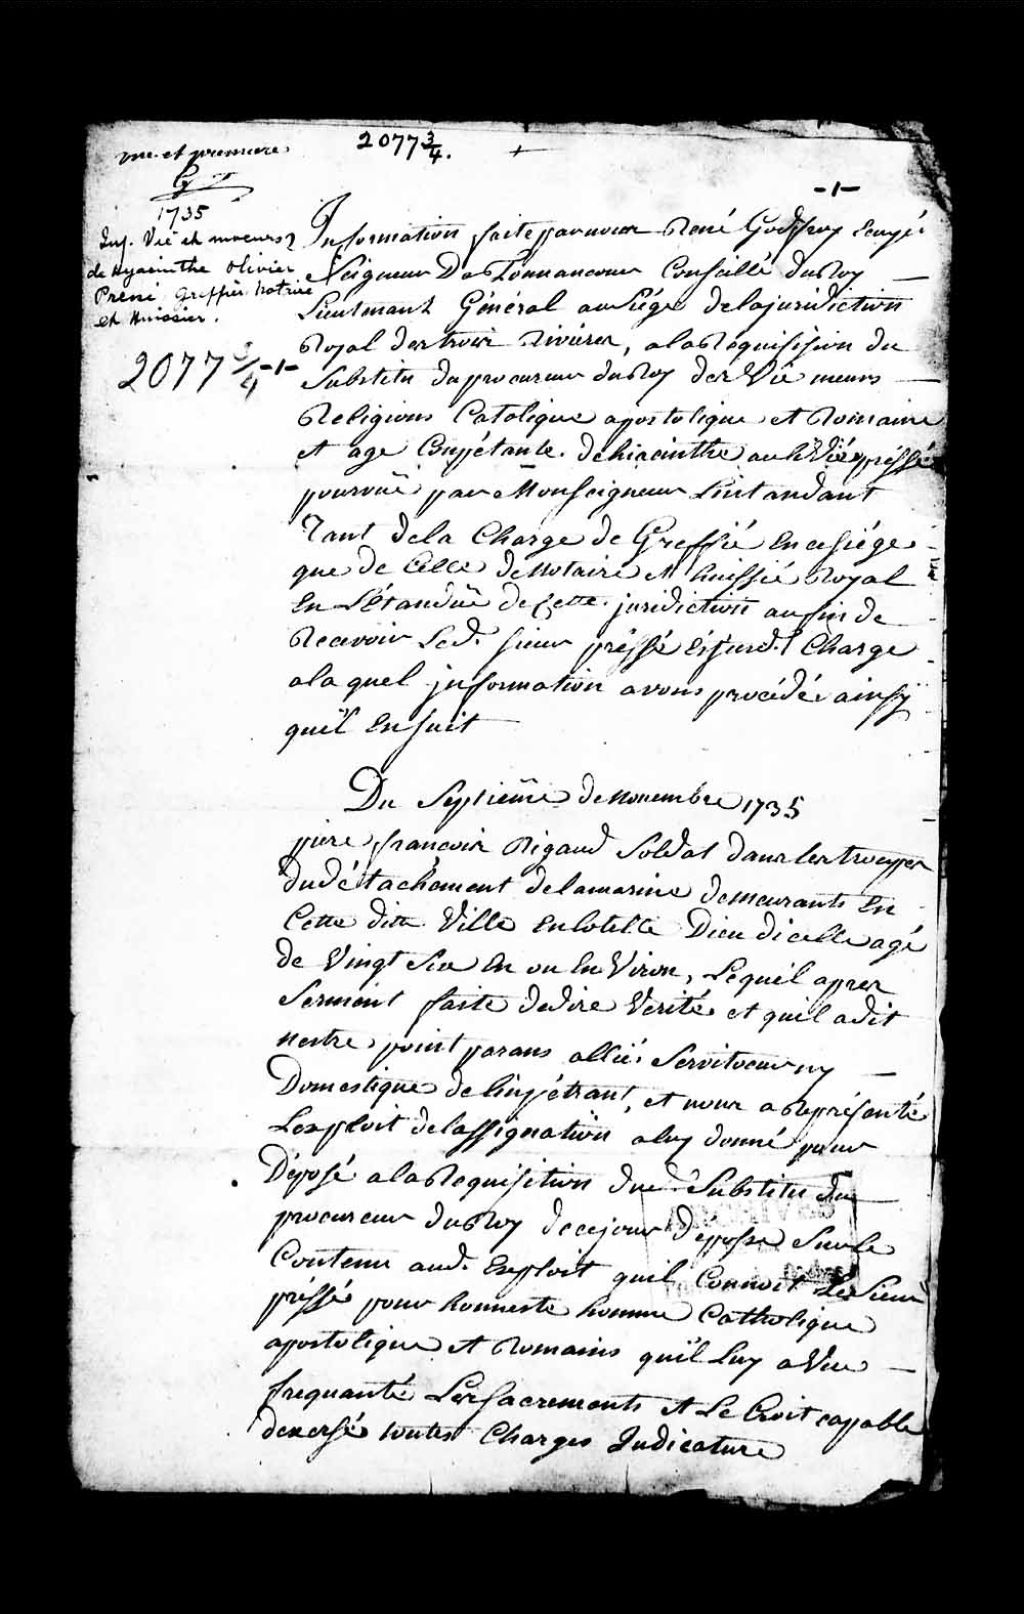 2077 3/4.
me. et premiere
1735
Inf. Vie et moeurs
de hyacinthe Olivier
Préné Greffier Notaire
et huissier.
2077 3/4 -1-
-1-
Information faite par nous René Godffroy Ecuyé
Seigneur De Tonnancour Conseillé du Roy
Lieutenant Général au Siége de la juridiction
Royal des trois Rivieres, a la Requisision du
Substitu du procureur du Roy des Vie meurs
Religions Catolique apostolique et Romaine
et age Compétante de hiacinthe préssé
pourvuë par Monseigneur Lintandant
Tant de la Charge de Greffié En ce siége
que de Celle de Notaire et huissié Royal
En L'étanduë de Cette juridiction au fin de
Recevoir Led. sieur préssé Charge
a la quel jnformation avons procédé ainsy
quil Ensuit
Du Septiême de Novembre 1735
piere françois Rigaud Soldat dans les trouppes
du détachement de la marine demeurants En
Cette ditte Ville En Lotelle Dieu dicelle agé
de Vingt Six En ou En Viron, Lequel apres
Serment faite de dire Verité et quil a dit
nestre point parans allié Serviteeur ny
Domestique de Linpétrant, et nous a Représanté
Lexploit de lassignation a luy donné pour
Déposé a la Requisition dud. Substitu du
procureur du Roy de ce jour dépose Sur le
Contenu aud. Exploit quil Connoit Le Sieur
préssé pour honneste homme Catholique
apostolique et Romains quil Luy a Vue
frequanté Les Sacrements et Le Croit capable
dexersé toutes Charges Judicature